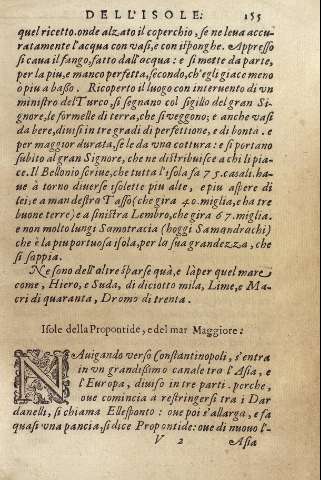 DELL'ISOLE. 155
quel ricetto. onde alzato il coperchio, se ne leua accu-
ratamente l'acqua con vasi, e con isponghe. Appresso
si caua il fango, fatto dall'acqua: e si mette da parte,
per la piu, e manco perfetta, secondo, ch'egli giace meno
o piu a basso. Ricoperto il luogo con interuento di vn
ministro del Turco, si segnano col sigillo del gran Si-
gnore, le formelle di terra, che si veggono; e anche vasi
da bere, diuisi in tre gradi di perfettione, e di bontà. e
per maggior durata, se le da vna cottura: e si portano
subito al gran Signore, che ne distribuisce a chi li pia-
ce. Il Bellonio scriue, che tutta l'isola fa 75. casali. ha-
ue à torno diuerse isolette piu alte, e piu aspere di
lei; e a man destra Tasso (che gira 40. miglia, e ha tre
buone terre) e a sinistra Lembro, che gira 67. miglia.
e non molto lungi Samotracia (hoggi Samandrachi)
che è la piu portuosa isola, per la sua grandezza, che
si sappia.
Ne sono dell'altre sparse quà, e là per quel mare
come, Hiero, e Suda, di diciotto mila, Lime, e Ma-
cri di quaranta, Dromo di trenta.
Isole della Propontide, e del mar Maggiore.
NAuigando verso Constantinopoli, s'entra
in vn grandissimo canale tro l'Asia, e
l'Europa, diuiso in tre parti. perche,
oue comincia a restringersi tra i Dar
danelli, si chiama Ellesponto: oue poi s'allarga, e fa
quasi vna pancia, si dice Propontide: oue di nuouo l'-
V 2 Asia